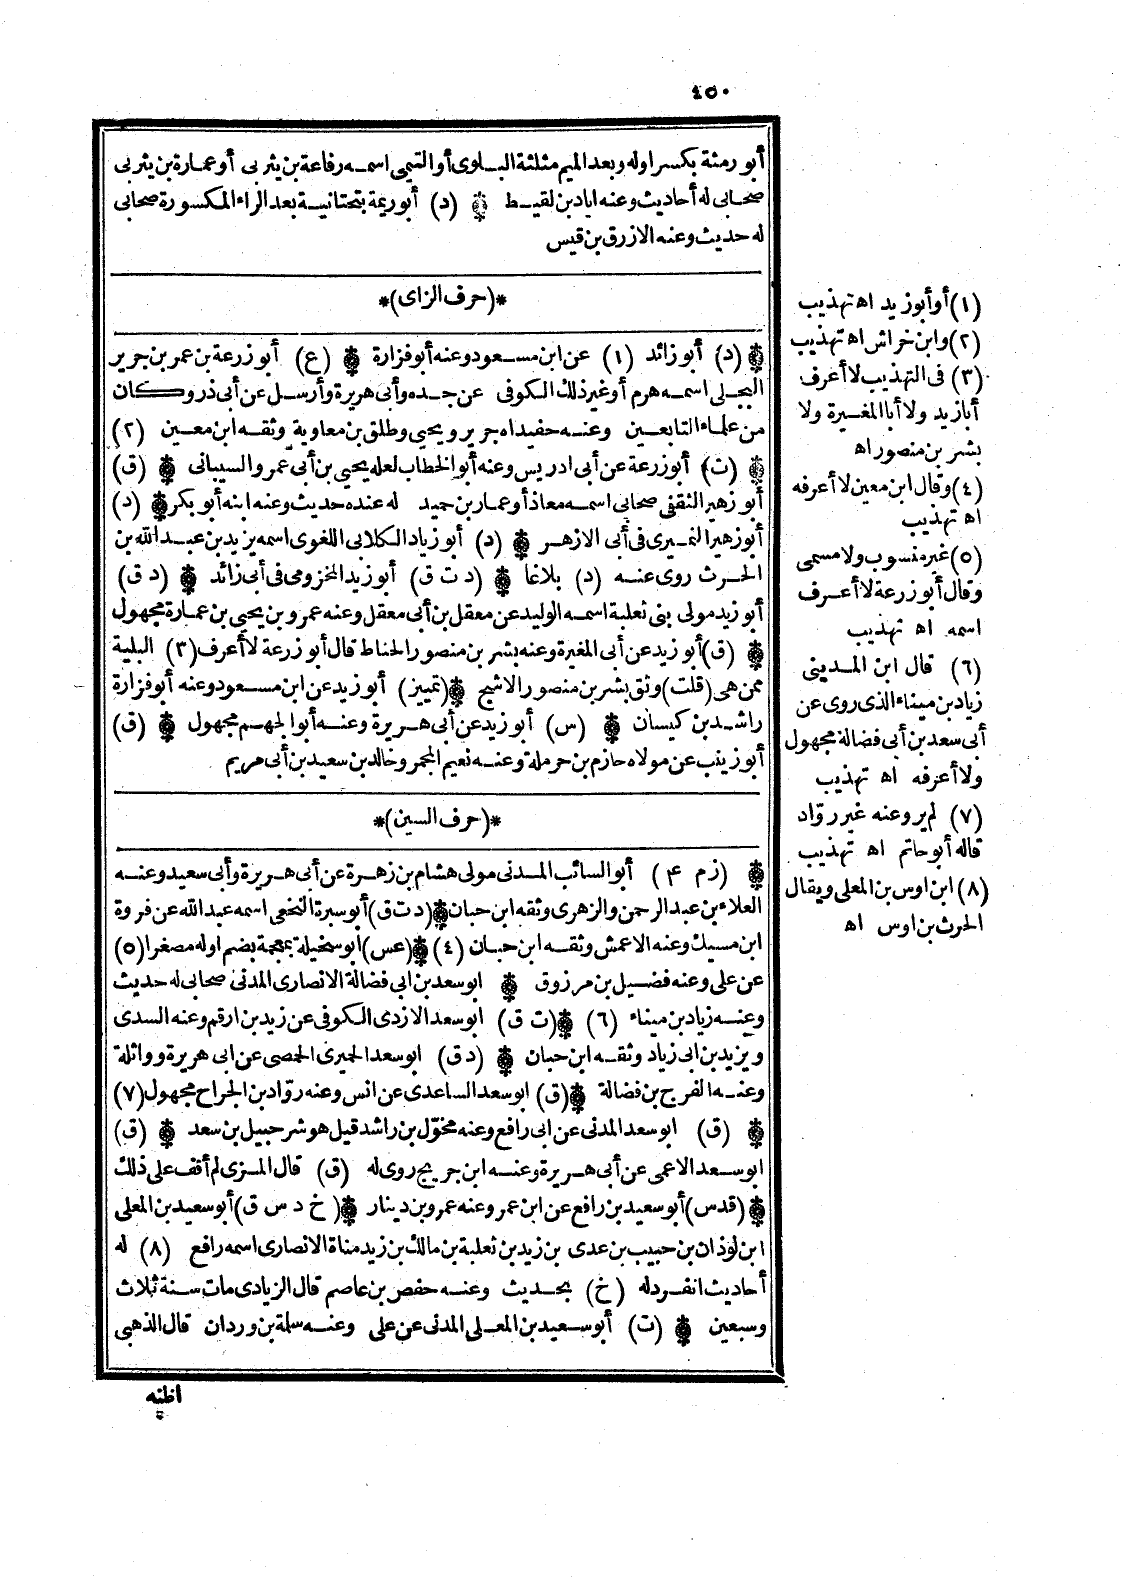 ٤٥٠
أبو رمثة بكسر اوله وبعد الميم مثلثة البلوى أو التيمى اسمه رفاعة بن يثربى أو عمارة بن يثربى
صحابى له أحاديث وعنه اياد بن لقيط (د) أبو ريمة بتحتانية بعد الراء المكسورة صحابى
له حديث وعنه الازرق بن قيس
*(حرف الزاى)*
(د) أبو زائد (١) عن ابن مسعود وعنه أبو فزارة (ع) أبو زرعة بن عمر بن جرير
البجلى اسمه هرم أو غير ذلك الكوفى عن جده وأبى هريرة وأرسل عن أبى ذر وكان
من علماء التابعين وعنه حفيداه جرير ويحيى وطلق بن معاوية وثقه ابن معين (٢)
(ت) أبو زرعة عن أبى ادريس وعنه أبو الخطاب لعله يحيى بن أبى عمرو السيبانى (ق)
أبو زهير الثقفى صحابى اسمه معاذ أو عمار بن حميد له عنده حديث وعنه ابنه أبو بكر (د)
أبو زهير النميرى فى أبى الازهر (د) أبو زياد الكلابى اللغوى اسمه يزيد بن عبد الله بن
الحرث روى عنه (د) بلاغا (د ت ق) أبو زيد المخزومى فى أبى زائد (د ق)
أبو زيد مولى بنى ثعلبة اسمه الوليد عن معقل بن أبى معقل وعنه عمرو بن يحيى بن عمارة مجهول
(ق) أبو زيد عن أبى المغيرة وعنه بشر بن منصور الحناط قال أبو زرعة لا أعرف (٣) البلية
ممن هى (قلت) وثق بشر بن منصور الاشج (تمييز) أبو زيد عن ابن مسعود وعنه أبو فزارة
راشد بن كيسان (س) أبو زيد عن أبى هريرة وعنه أبو الجهم مجهول (ق)
أبو زينب عن مولاه حازم بن حرملة وعنه نعيم المجمر وخالد بن سعيد بن أبى مريم
*(حرف السين)*
(زم ٤) أبو السائب المدنى مولى هشام بن زهرة عن أبى هريرة وأبى سعيد وعنه
العلاء بن عبد الرحمن والزهرى وثقه ابن حبان (د ت ق) أبو سبرة النخعى اسمه عبد الله عن فروة
ابن مسيك وعنه الاعمش وثقه ابن حبان (٤) (عس) ابو سخيلة بمعجمة بضم اوله مصغرا (٥)
عن على وعنه فضيل بن مرزوق ابو سعد بن ابى فضالة الانصارى المدنى صحابى له حديث
وعنه زياد بن ميناء (٦) (ت ق) ابو سعد الازدى الكوفى عن زيد بن ارقم وعنه السدى
ويزيد بن ابى زياد وثقه ابن حبان (د ق) ابو سعد الحميرى الحمصى عن ابى هريرة وواثلة
وعنه الفرج بن فضالة (ق) ابو سعد الساعدى عن انس وعنه روّاد بن الجراح مجهول (٧)
(ق) ابو سعد المدنى عن ابى رافع وعنه مخوّل بن راشد قيل هو شرحبيل بن سعد (ق)
ابو سعد الاعمى عن أبى هريرة وعنه ابن جريج روى له (ق) قال المزى لم أقف على ذلك
(قدس) أبو سعيد بن رافع عن ابن عمر وعنه عمرو بن دينار (خ د س ق) أبو سعيد بن المعلى
ابن لوذان بن حبيب بن عدى بن زيد بن ثعلبة بن مالك بن زيد مناة الانصارى اسمه رافع (٨) له
أحاديث انفرد له (خ) بحديث وعنه حفص بن عاصم قال الزيادى مات سنة ثلاث
وسبعين (ت) أبو سعيد بن المعلى المدنى عن على وعنه سلمة بن وردان قال الذهبى
اظنه
(١) أو أبو زيد اه تهذيب
(٢) وابن خراش اه تهذيب
(٣) فى التهذيب لا أعرف
أبا زيد ولا أبا المغيرة ولا
بشر بن منصور اه
(٤) وقال ابن معين لا أعرفه
اه تهذيب
(٥) غير منسوب ولا مسمى
وقال أبو زرعة لا أعرف
اسمه اه تهذيب
(٦) قال ابن المدينى
زياد بن ميناء الذى روى عن
أبى سعد بن أبى فضالة مجهول
ولا أعرفه اه تهذيب
(٧) لم يرو عنه غير روّاد
قاله أبو حاتم اه تهذيب
(٨) ابن اوس بن المعلى ويقال
الحرث بن اوس اه